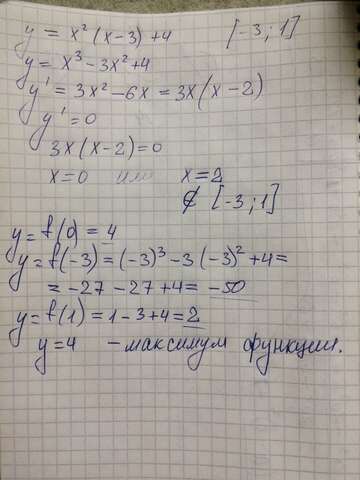 y = x² (x-3) + 4 [-3; 1]
y = x³ - 3x² + 4
y' = 3x² - 6x = 3x(x-2)
y' = 0
3x(x-2) = 0
x = 0 или x = 2
∉ [-3; 1]
y = f(0) = 4
y = f(-3) = (-3)³ - 3(-3)² + 4 =
= -27 - 27 + 4 = -50
y = f(1) = 1 - 3 + 4 = 2
y = 4 - максимум функции.